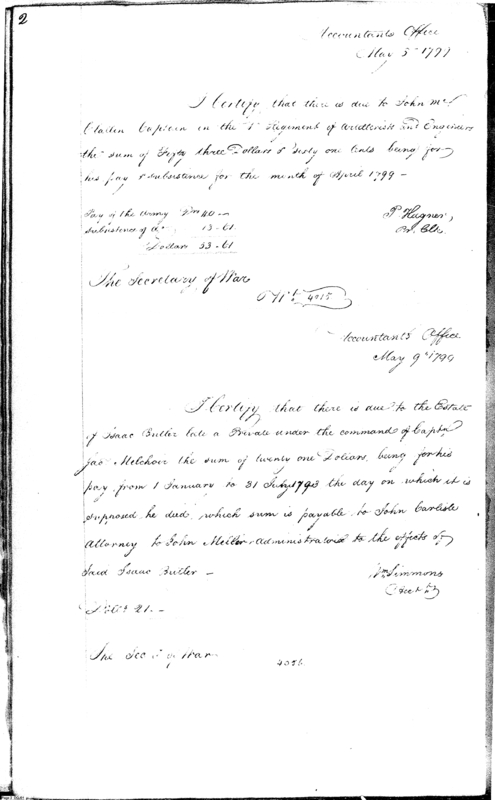 2
Accountants Office
May 5th 1799
I Certify that there is due to John Mc
Clallen Captain in the 1st Regiment of Artillerists and Engineers
the sum of Fifty three Dollars & sixty one Cents being for
his pay & subsistence for the month of April 1799 –
Pay of the Army 40 –
Subsistence of do. 13.61
Dollars 53.61
P. Hagner,
Pr. Clk.
The Secretary of War
Wt. 4015
Accountants Office
May 9th 1799
I Certify that there is due to the Estate
of Isaac Butler late a Private under the command of Captn.
Jas Melchoir the sum of twenty one Dollars, being for his
pay from 1 January to 31 July 1793 the day on which it is
supposed he died, which sum is payable to John Carlisle
Attorney to John Miller Administrator to the effects of
said Isaac Butler –
Wm Simmons
Acct.
Dolls 21. –
The Secy of War
4056